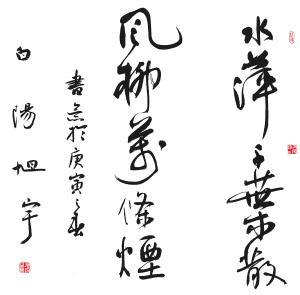 水萍千葉散
風柳萬條煙
書意於庚寅之春
白陽旭宇